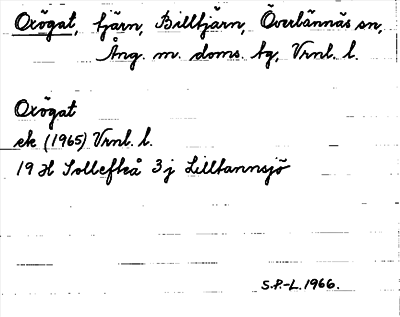 Oxögat, tjärn, Billtjärn, Överlännäs sn,
Ång. m. doms. tg, Vrnl. l.
Oxögat
ek (1965) Vrnl. l.
19 H Sollefteå 3 j Lilltannsjö
S.P.-L. 1966.